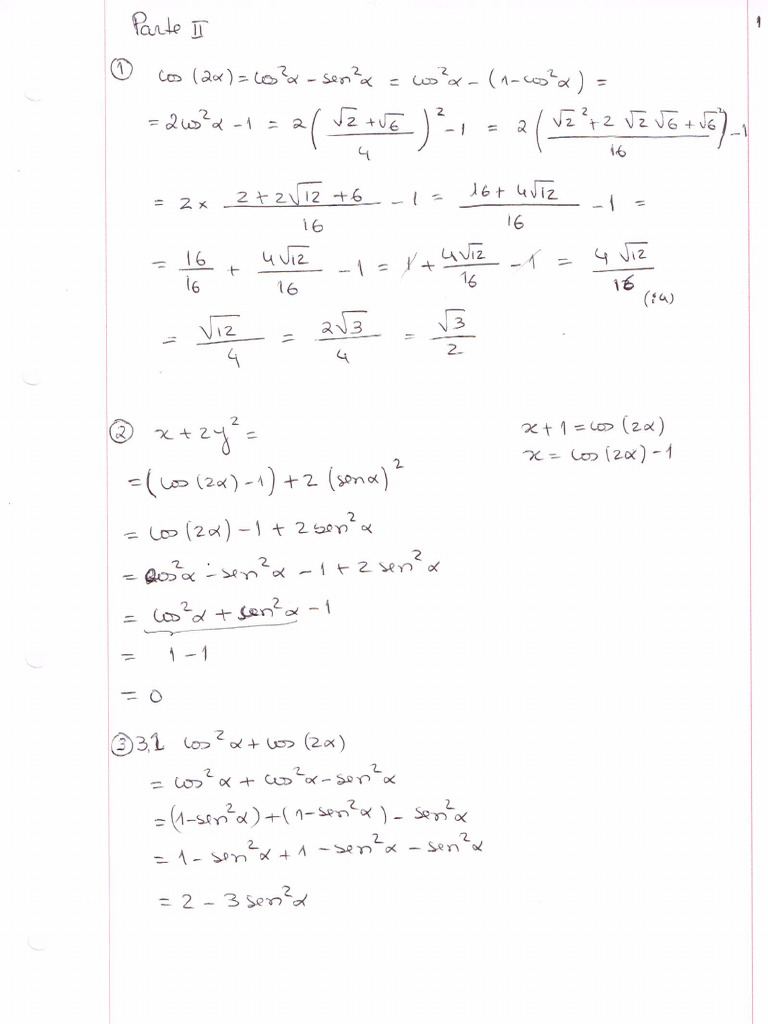 1
Parte II
① cos (2α) = cos²α - sen²α = cos²α - (1-cos²α) =
= 2cos²α - 1 = 2 ( (√2 + √6)/4 )² - 1 = 2 ( (√2² + 2 √2 √6 + √6²)/16 ) - 1
= 2 × (2 + 2√12 + 6)/16 - 1 = (16 + 4√12)/16 - 1 =
= 16/16 + 4√12/16 - 1 = 1 + 4√12/16 - 1 = 4√12/16 (:4)
= √12/4 = 2√3/4 = √3/2
② x + 2y² =
x + 1 = cos (2α)
x = cos (2α) - 1
= (cos (2α) - 1) + 2 (senα)²
= cos (2α) - 1 + 2 sen²α
= cos²α - sen²α - 1 + 2 sen²α
= cos²α + sen²α - 1
= 1 - 1
= 0
③ 3.1 cos²α + cos (2α)
= cos²α + cos²α - sen²α
= (1-sen²α) + (1-sen²α) - sen²α
= 1 - sen²α + 1 - sen²α - sen²α
= 2 - 3 sen²α